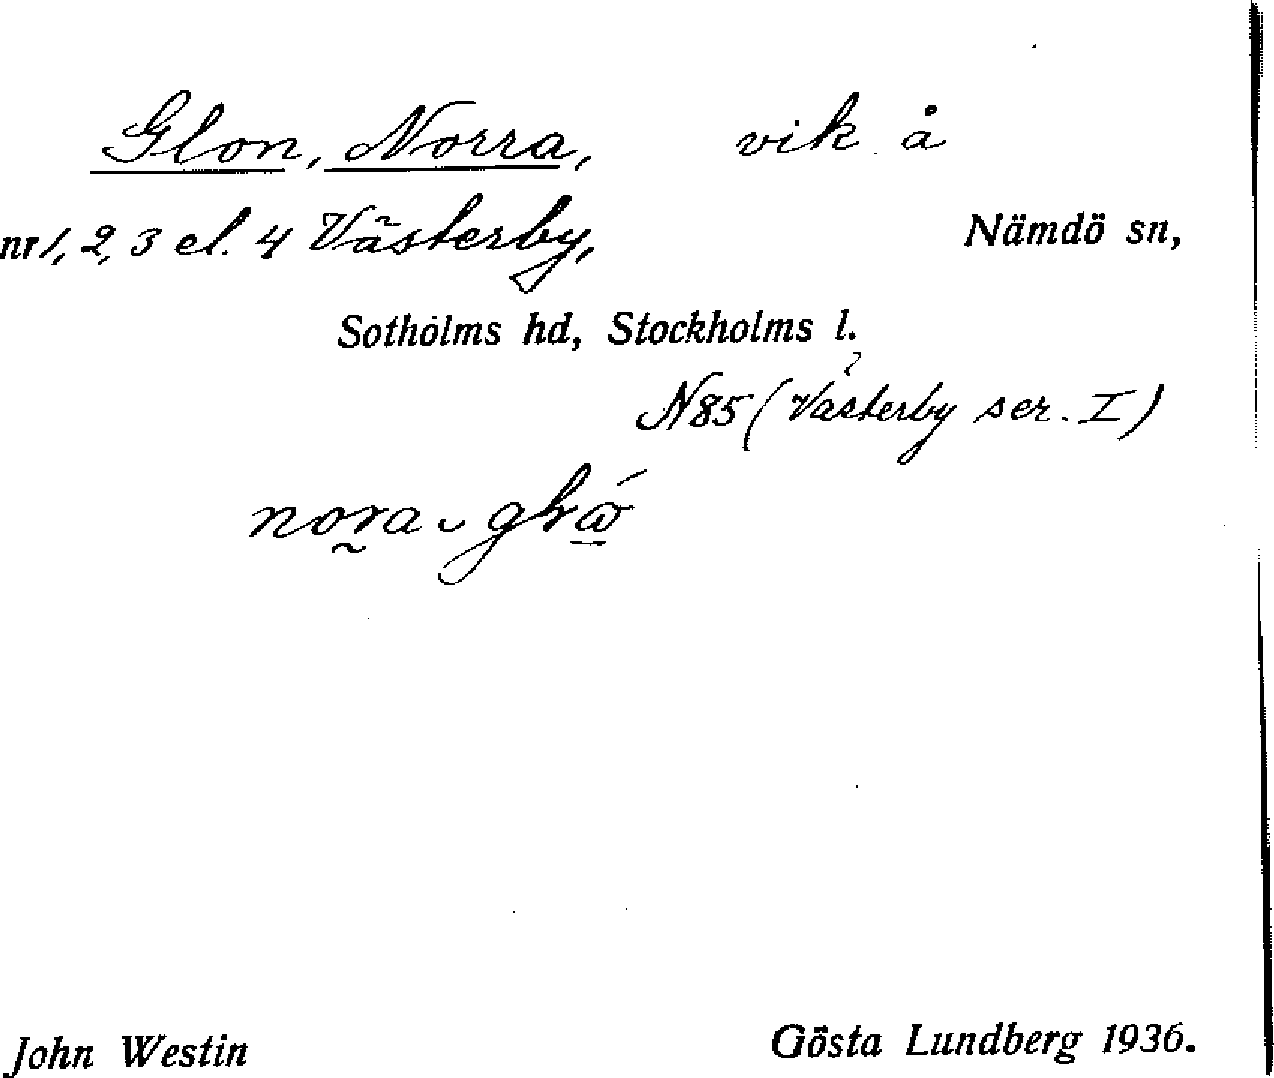 Glon, Norra, vik å
nr 1, 2, 3 el. 4 Västerby, Nämdö sn,
Sotholms hd, Stockholms l.
N85 (Västerby ser. I)
nora
John Westin Gösta Lundberg 1936.